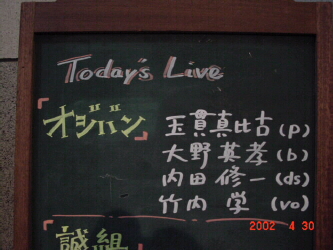 Today's Live
オジバン
玉貫真比古(p)
大野英孝(b)
内田修一(ds)
竹内学(vo)
誠組
2002 4 30